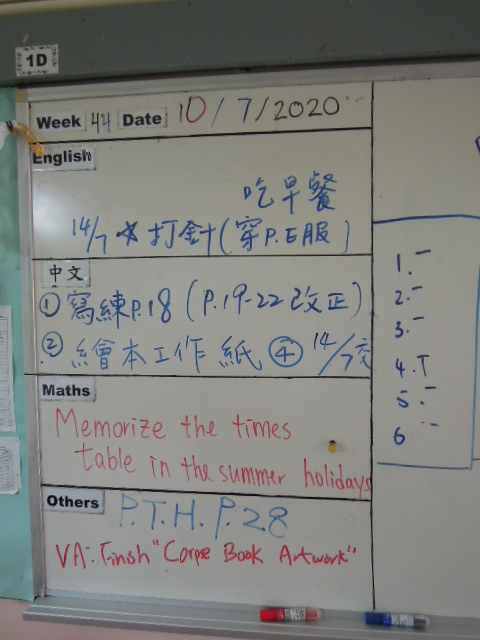 1D
Week 44 Date 10/7/2020
English
吃早餐
14/7 * 打針(穿P.E服)
中文
① 寫練P.18 (P.19-22改正)
② 繪本工作紙④ 14/7交
Maths
Memorize the times
table in the summer holidays
Others
P.T.H. P.28
VA: Finish "Corpe Book Artwork"
1.
2.
3.
4. T
5.
6